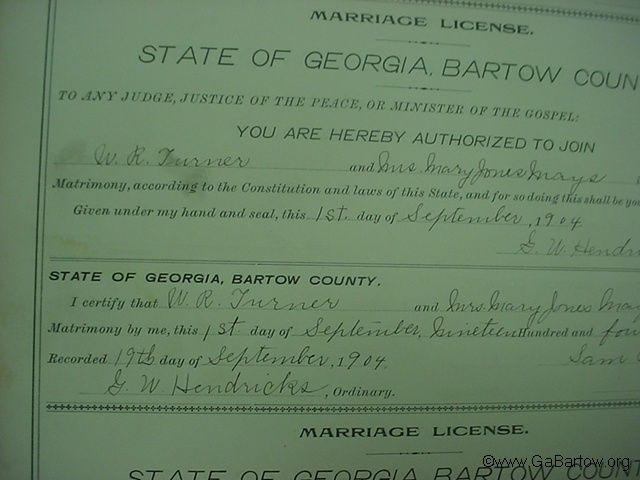 MARRIAGE LICENSE.
STATE OF GEORGIA, BARTOW COUN
TO ANY JUDGE, JUSTICE OF THE PEACE, OR MINISTER OF THE GOSPEL:
YOU ARE HEREBY AUTHORIZED TO JOIN
W. R. Turner and Mrs. Mary Jones Mays
Matrimony, according to the Constitution and laws of this State, and for so doing this shall be you
Given under my hand and seal, this 1st. day of September, 1904
G. W Hendri
STATE OF GEORGIA, BARTOW COUNTY.
I certify that W. R. Turner and Mrs. Mary Jones May
Matrimony by me, this 1st day of September, nineteen Hundred and fou
Recorded 19th day of September, 1904. Sam
G. W Hendricks, Ordinary.
MARRIAGE LICENSE.
STATE OF GEORGIA, BARTOW COUNT
©www.GaBartow.org